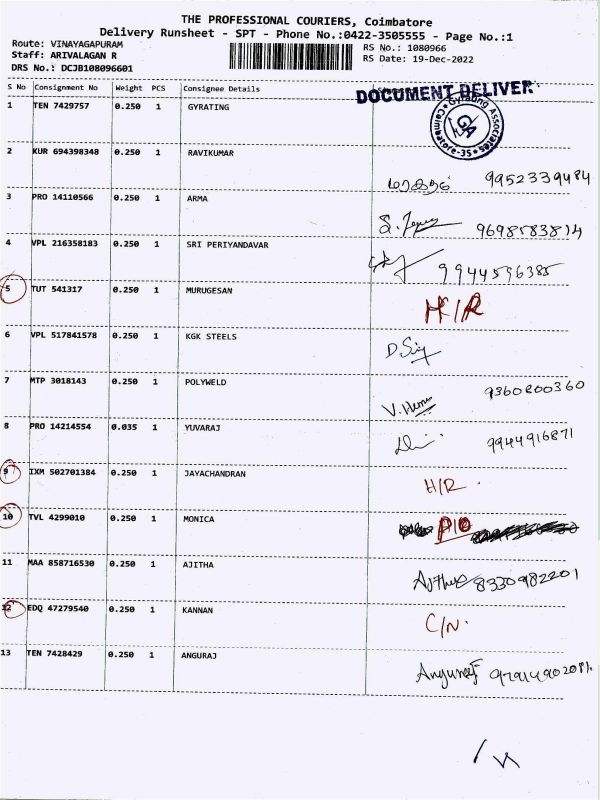 THE PROFESSIONAL COURIERS, Coimbatore
Delivery Runsheet - SPT - Phone No.:0422-3505555 - Page No.:1
Route: VINAYAGAPURAM
Staff: ARIVALAGAN R
DRS No.: DCJB108096601
RS No.: 1080966
RS Date: 19-Dec-2022
S No Consignment No Weight PCS Consignee Details
DOCUMENT DELIVER
1 TEN 7429757 0.250 1 GYRATING
Gyrating Associates
GA
Coimbatore-35
2 KUR 694398348 0.250 1 RAVIKUMAR 9952339484
3 PRO 14110566 0.250 1 ARMA 9698583814
4 VPL 216358183 0.250 1 SRI PERIYANDAVAR 9944596385
5 TUT 541317 0.250 1 MURUGESAN H/R
6 VPL 517841578 0.250 1 KGK STEELS
7 MTP 3018143 0.250 1 POLYWELD 9360800360
8 PRO 14214554 0.035 1 YUVARAJ 9944916871
9 IXM 502701384 0.250 1 JAYACHANDRAN H/R
10 TVL 4299010 0.250 1 MONICA
11 MAA 858716530 0.250 1 AJITHA 8330982201
12 EDQ 47279540 0.250 1 KANNAN C/N.
13 TEN 7428429 0.250 1 ANGURAJ Anguraj